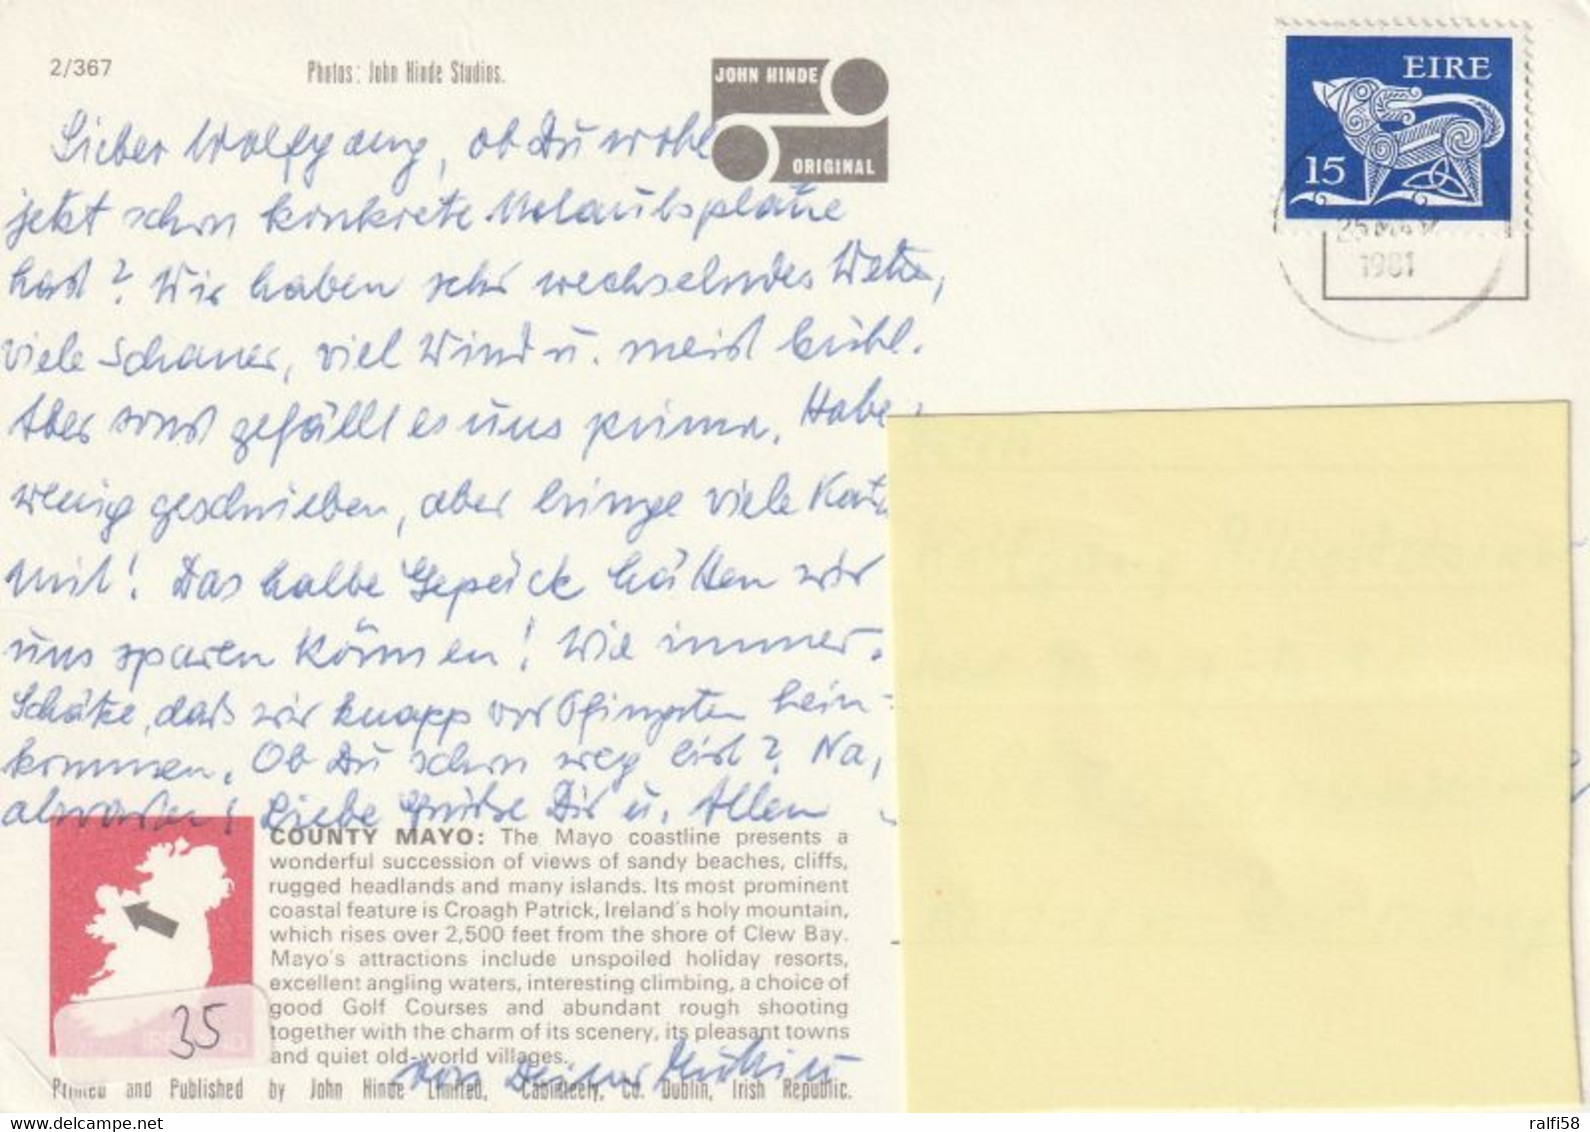 2/367
Photos: John Hinde Studios.
JOHN HINDE
ORIGINAL
EIRE
15
25 MAY
1981
Lieber Wolfgang, ob Du wohl
jetzt schon konkrete Urlaubspläne
hast? Wir haben sehr wechselndes Wetter,
viele Schauer, viel Wind u. meist kühl.
Aber sonst gefällt es uns prima. Habe
wenig geschrieben, aber bringe viele
mit! Das halbe Gepäck hätten wir
uns sparen können! Wie immer.
Schätze, daß wir knapp vor Pfingsten heim-
kommen. Ob Du schon weg bist? Na,
abwarten! Liebe Grüße Dir u. Allen
COUNTY MAYO: The Mayo coastline presents a
wonderful succession of views of sandy beaches, cliffs,
rugged headlands and many islands. Its most prominent
coastal feature is Croagh Patrick, Ireland's holy mountain,
which rises over 2,500 feet from the shore of Clew Bay.
Mayo's attractions include unspoiled holiday resorts,
excellent angling waters, interesting climbing, a choice of
good Golf Courses and abundant rough shooting
together with the charm of its scenery, its pleasant towns
and quiet old-world villages.
IRELAND
35
von Deiner
Printed and Published by John Hinde Limited, Cabinteely, Co. Dublin, Irish Republic.
www.delcampe.net
ralfi58